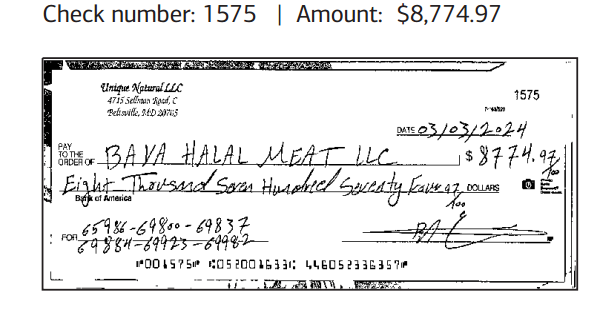 Check number: 1575 | Amount: $8,774.97
Unique Natural LLC
4715 Sellman Road, C
Beltsville, MD 20705
1575
DATE 03/03/2024
PAY TO THE ORDER OF BAVA HALAL MEAT LLC $ 8774.97/100
Eight Thousand Seven Hundred Seventy Four 97/100 DOLLARS
Bank of America
FOR 65986-69800-69837
69884-69923-69982
⑈001575⑈ ⑆052001633⑆ 446052336357⑈